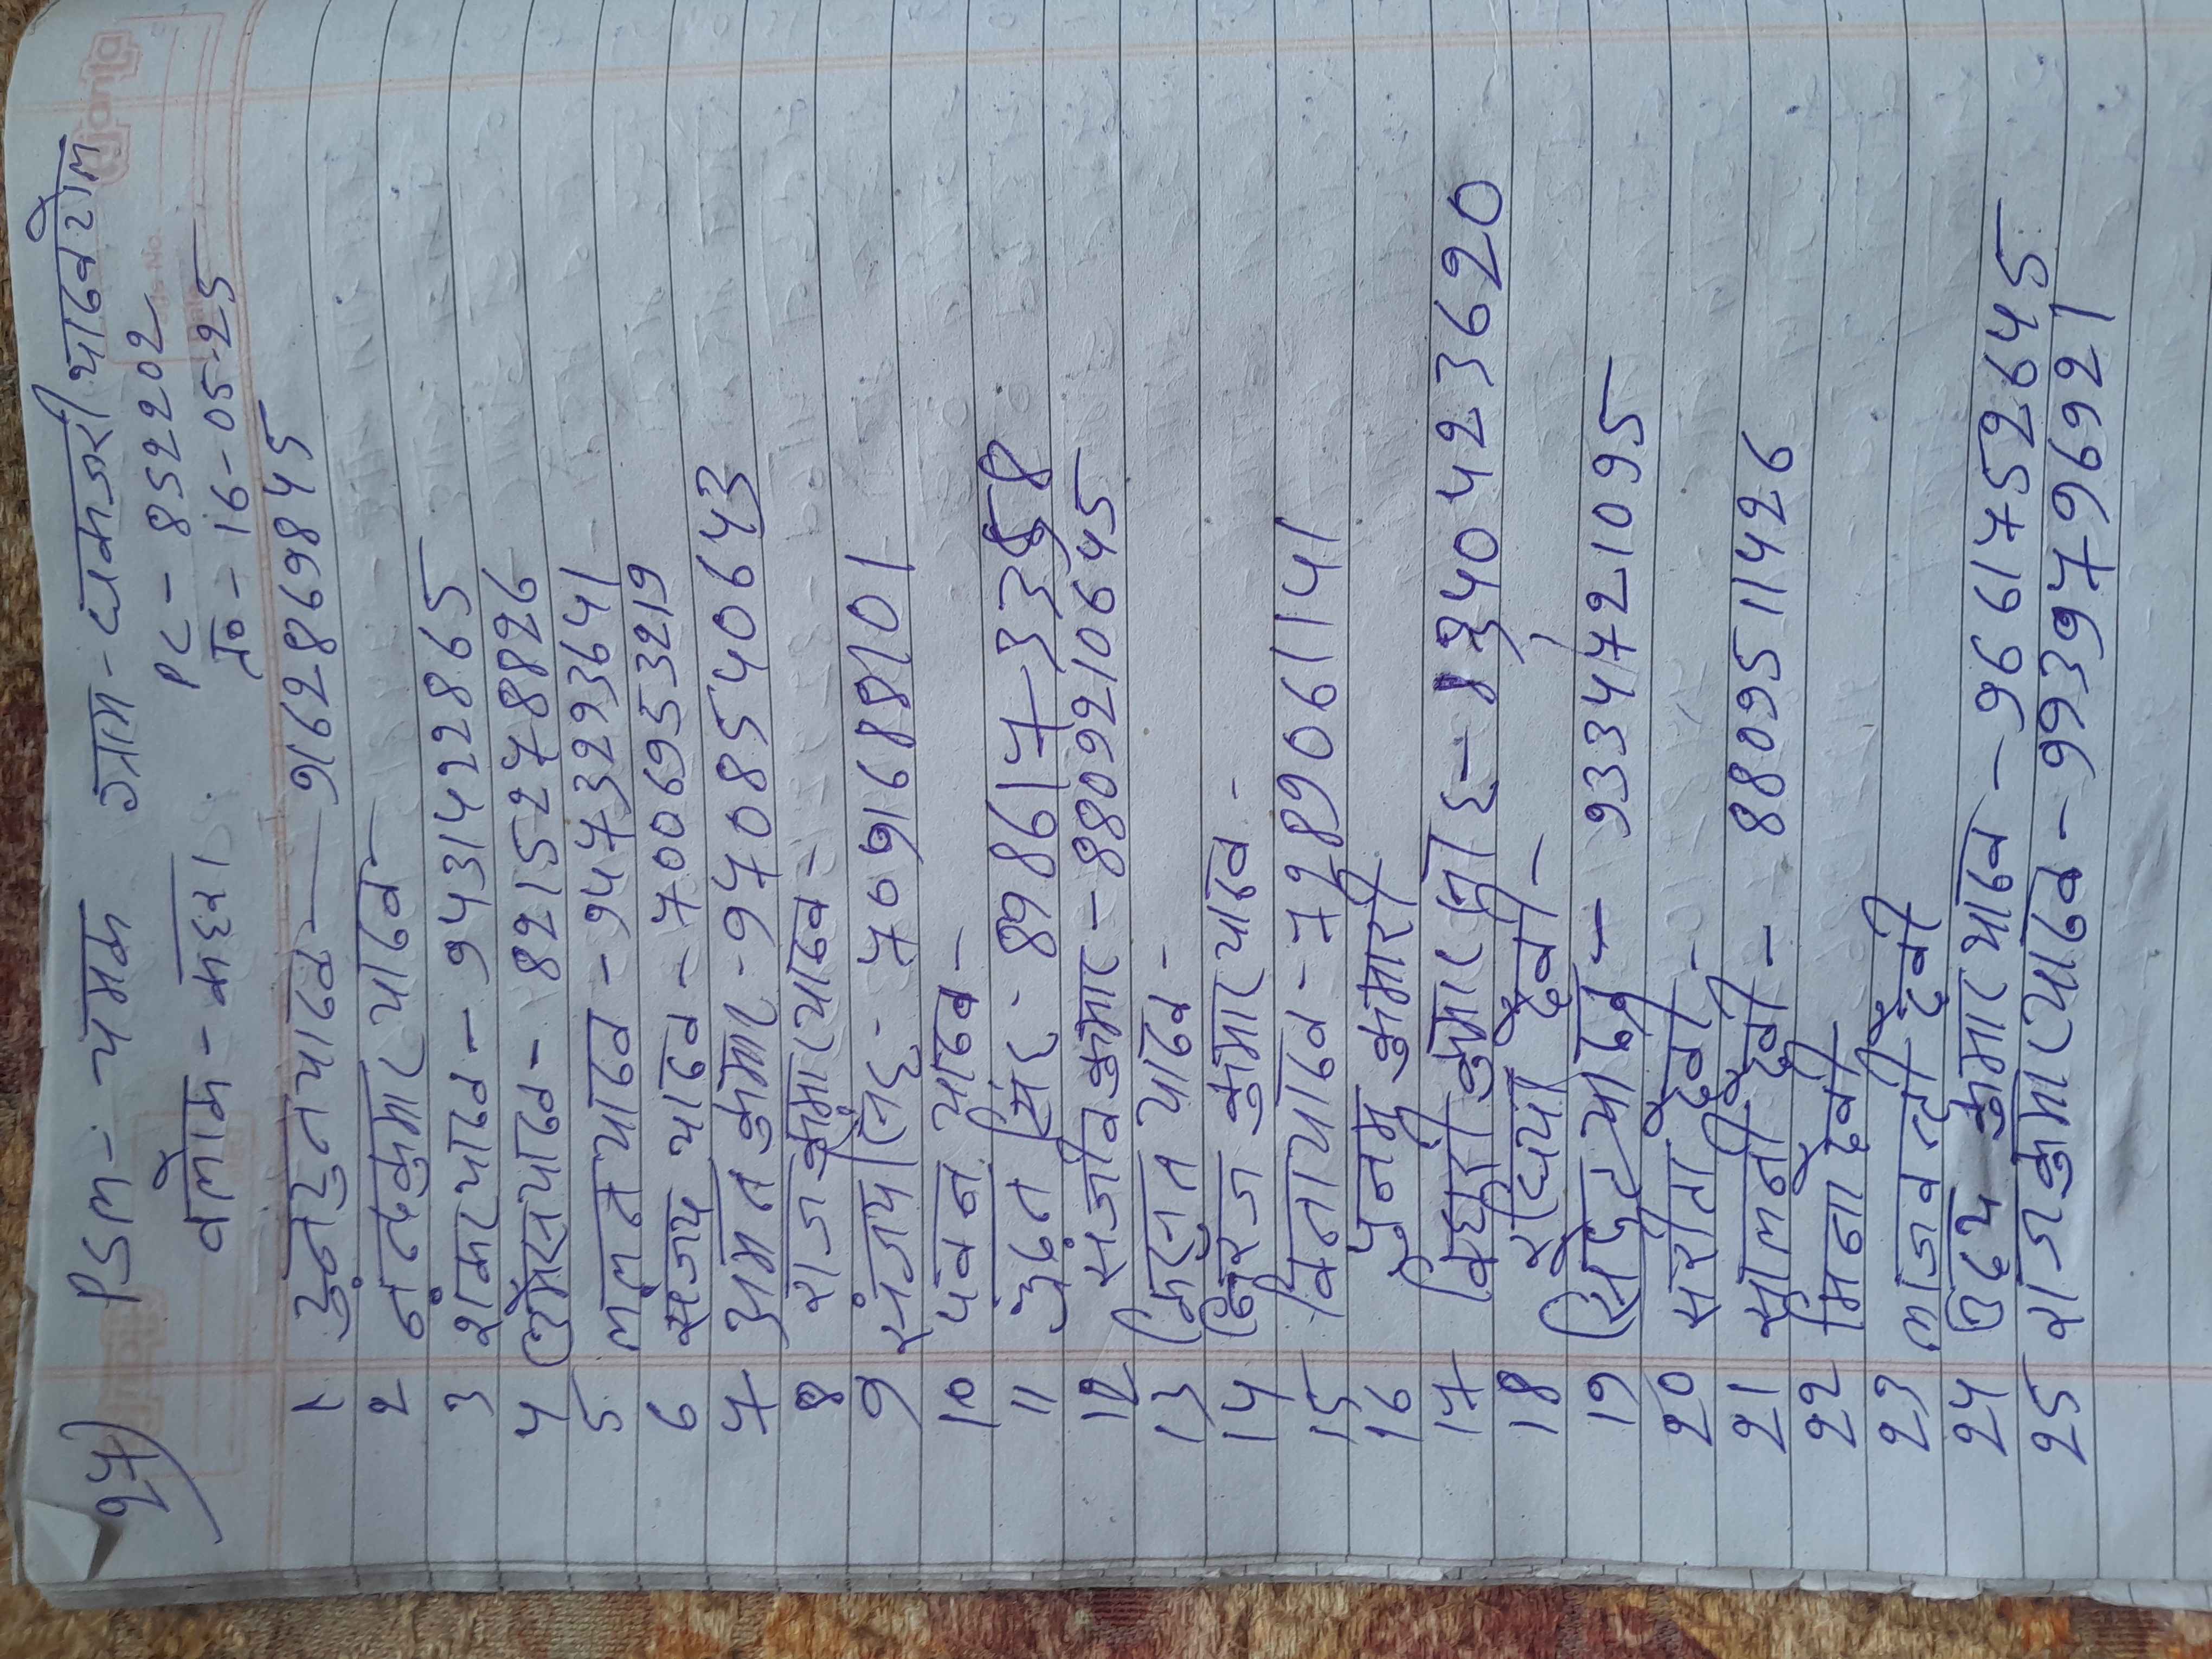 27) PSM - पंमक ग्राम - धमकजरी यादव टोल
वलोम - महवा PC - 852202
ता० - 16-05-25
1 चुनचुन यादव - 9162869845
2 नन्दकुमार यादव -
3 शंकर यादव - 9431422865
4 उमेस यादव - 8215278826
5 ललन यादव - 9473293641
6 संजय यादव - 7006953219
7 अमन कुमार - 9708540643
8 राज कुमार यादव -
9 संजय सिंह - 7091688101
10 पवन यादव -
11 सिंह - 898617
12 संजीव कुमार - 8809210645
13 यादव -
14 कुमार यादव -
15 यादव - 7289061141
16 पुनम कुमारी
17 कुमार - 8340423620
18 देवी -
19 यादव - 9334721095
20 सरीता देवी -
21 देवी - 8809511426
22 मिना देवी
23 लाजवन्ती देवी
24 उदय कुमार यादव - 9661752645
25 राजकुमार यादव - 9939796921